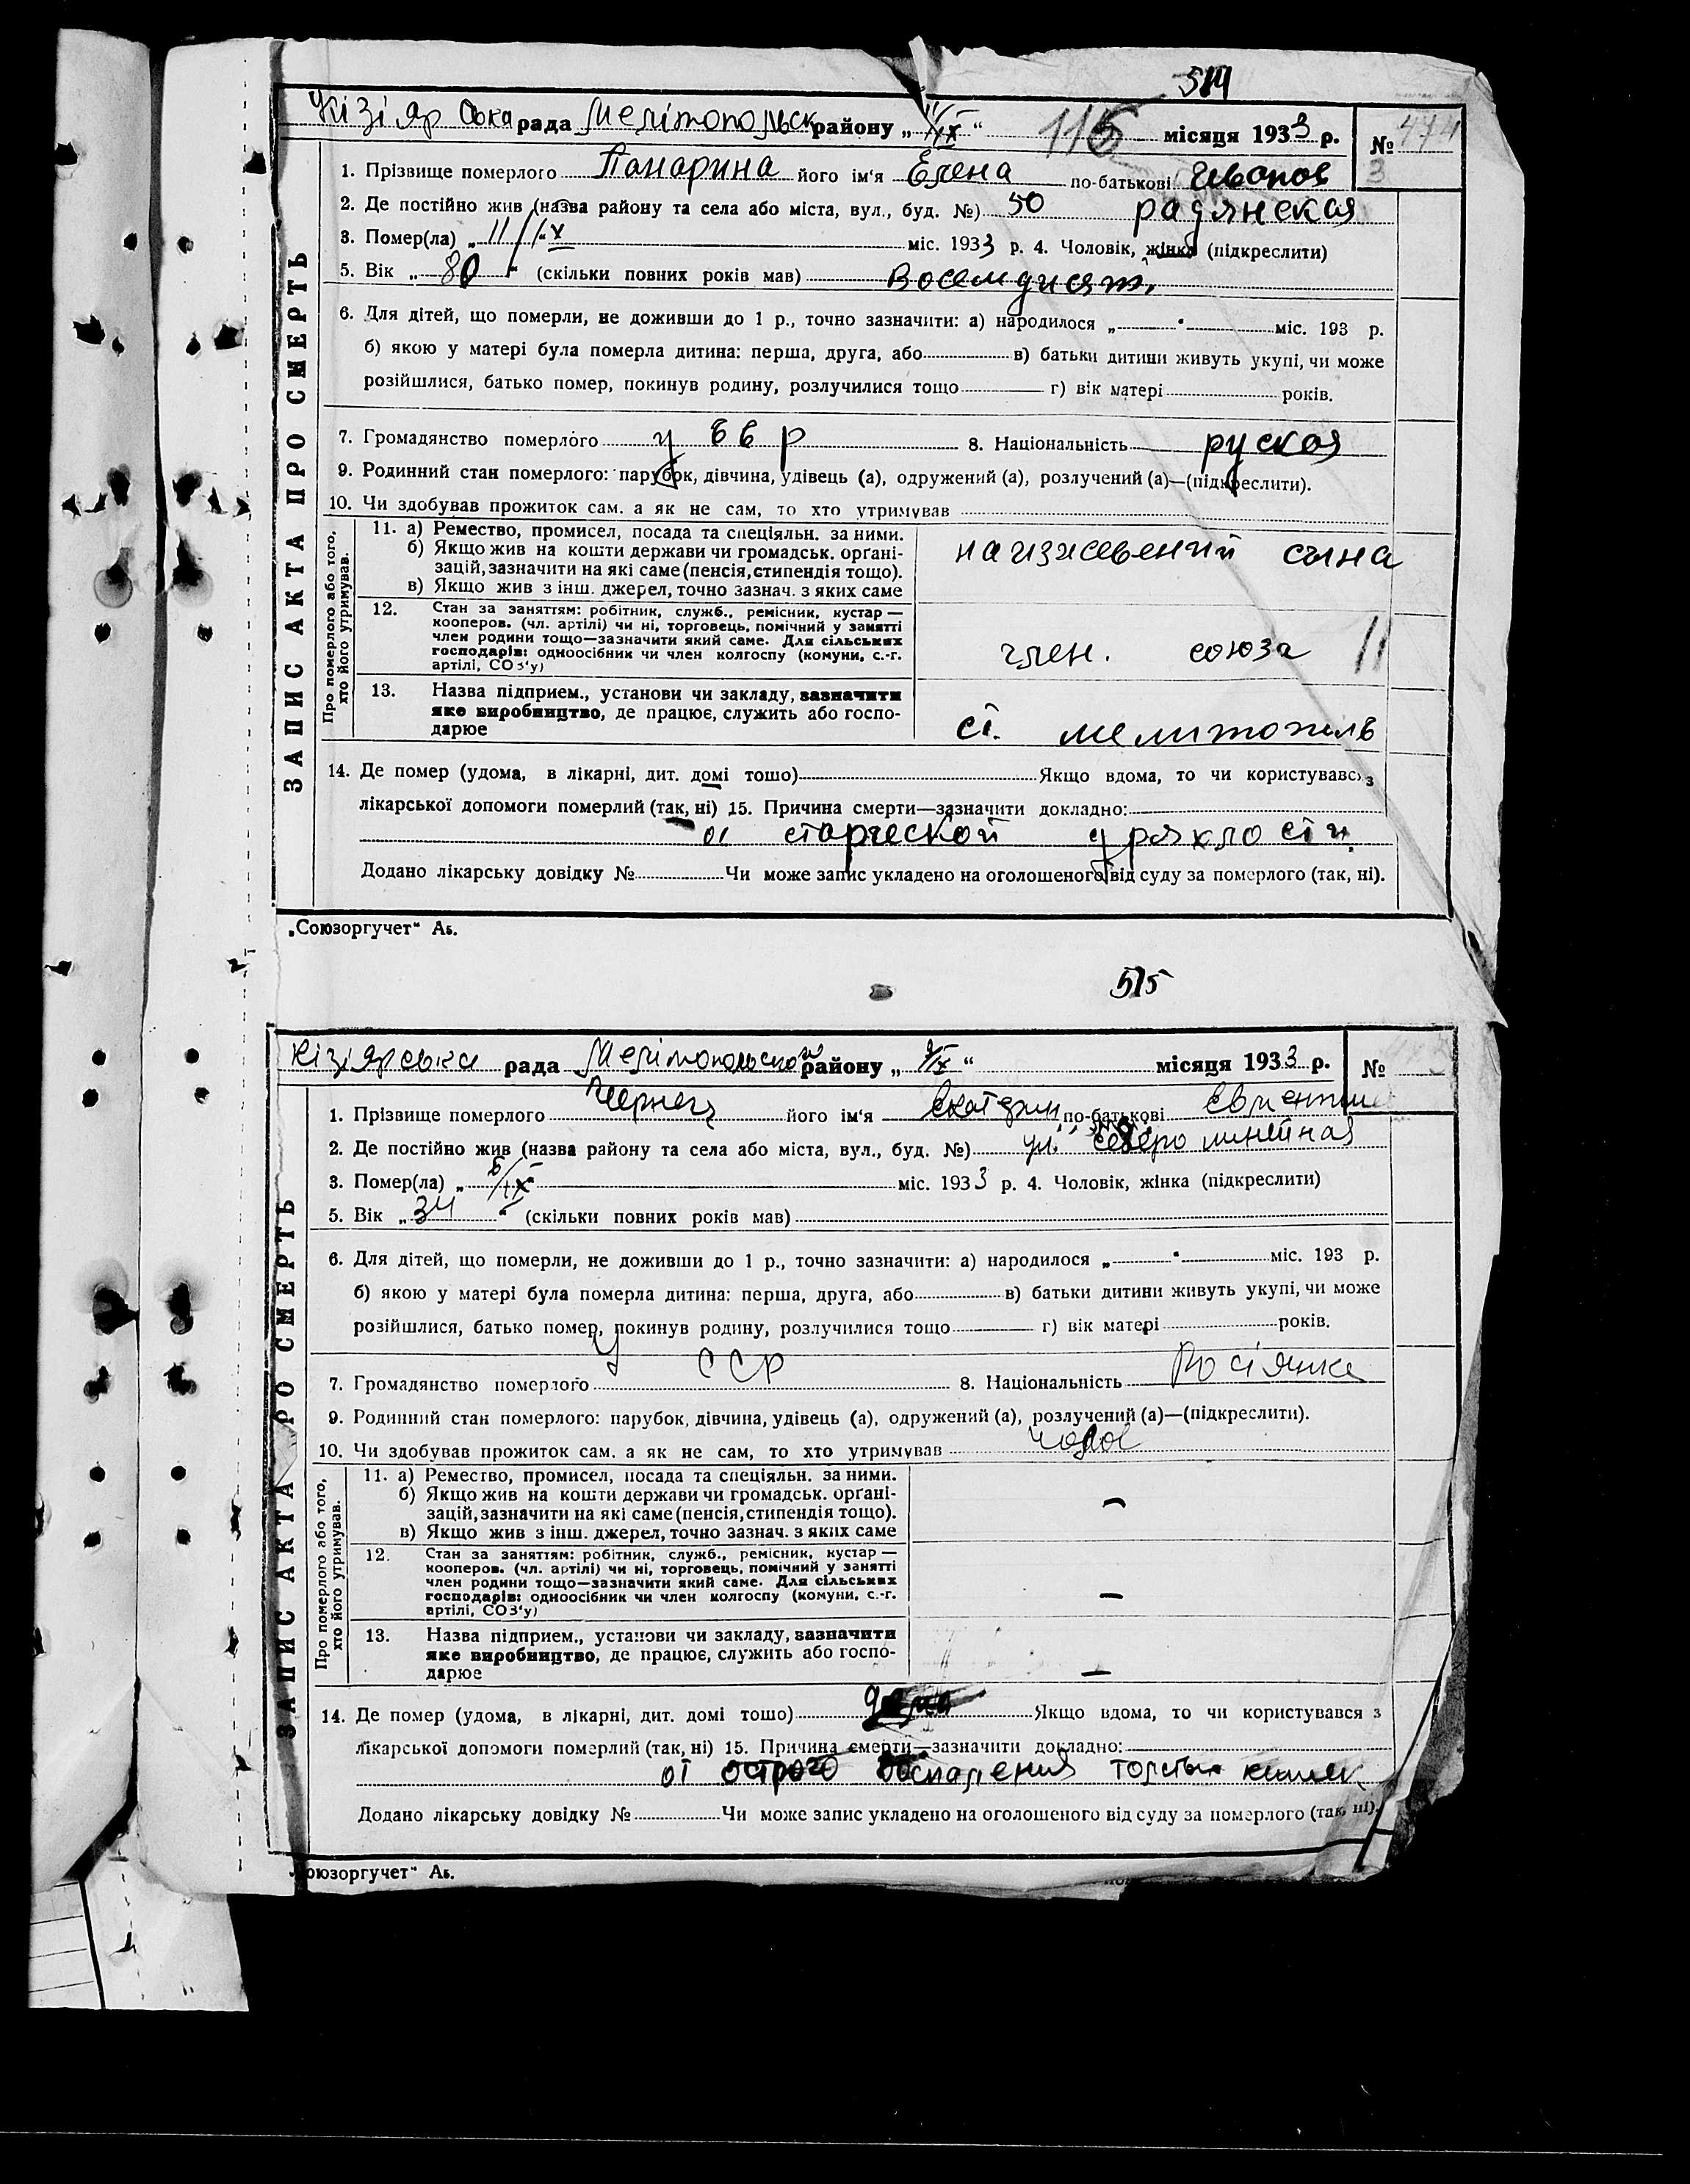 514
Кізіяр ська рада Мелітопольск району „11/IX“ 116 місяця 1933 р. № 474
3
1. Прізвище померлого Панарина його ім'я Елена по-батькові
2. Де постійно жив (назва району та села або міста, вул., буд. №) 50 радянская
3. Помер(ла) „11/IX“ міс. 1933 р. 4. Чоловік, жінка (підкреслити)
5. Вік „80“ (скільки повних років мав) восемдисят.
6. Для дітей, що померли, не доживши до 1 р., точно зазначити: а) народилося „ “ міс. 193 р.
б) якою у матері була померла дитина: перша, друга, або в) батьки дитини живуть укупі, чи може
розійшлися, батько помер, покинув родину, розлучилися тощо г) вік матері років.
7. Громадянство померлого 8. Національність руская
9. Родинний стан померлого: парубок, дівчина, удівець (а), одружений (а), розлучений (а)—(підкреслити).
10. Чи здобував прожиток сам, а як не сам, то хто утримував
ЗАПИС АКТА ПРО СМЕРТЬ
Про померлого або того,
хто його утримував.
11. а) Ремество, промисел, посада та спеціяльн. за ними.
б) Якщо жив на кошти держави чи громадськ. орґані-
зацій, зазначити на які саме (пенсія, стипендія тощо).
в) Якщо жив з інш. джерел, точно зазнач. з яких саме
на изжевений сына
12. Стан за заняттям: робітник, служб., ремісник, кустар —
кооперов. (чл. артілі) чи ні, торговець, помічний у занятті
член родини тощо—зазначити який саме. Для сільських
господарів: одноосібник чи член колгоспу (комуни, с.-г.
артілі, СОЗ'у)
член. союза 11
13. Назва підприєм., установи чи закладу, зазначити
яке виробництво, де працює, служить або госпо-
дарює
ст. мелитополь
14. Де помер (удома, в лікарні, дит. домі тощо) Якщо вдома, то чи користувався з
лікарської допомоги померлий (так, ні) 15. Причина смерти—зазначити докладно:
от старческой дряхлости.
Додано лікарську довідку № Чи може запис укладено на оголошеного від суду за померлого (так, ні).
„Союзоргучет“ Аь.
515
Кізіярська рада Мелітопольского району „9/IX“ місяця 1933 р. №
1. Прізвище померлого Чернец його ім'я Екатерин по-батькові
2. Де постійно жив (назва району та села або міста, вул., буд. №) ул. Северо линейная
3. Помер(ла) „ /IX“ міс. 1933 р. 4. Чоловік, жінка (підкреслити)
5. Вік „34“ (скільки повних років мав)
6. Для дітей, що померли, не доживши до 1 р., точно зазначити: а) народилося „ “ міс. 193 р.
б) якою у матері була померла дитина: перша, друга, або в) батьки дитини живуть укупі, чи може
розійшлися, батько помер, покинув родину, розлучилися тощо г) вік матері років.
7. Громадянство померлого У ССР 8. Національність Росіянка
9. Родинний стан померлого: парубок, дівчина, удівець (а), одружений (а), розлучений (а)—(підкреслити).
10. Чи здобував прожиток сам, а як не сам, то хто утримував чолов
ЗАПИС АКТА ПРО СМЕРТЬ
Про померлого або того,
хто його утримував.
11. а) Ремество, промисел, посада та спеціяльн. за ними.
б) Якщо жив на кошти держави чи громадськ. орґані-
зацій, зазначити на які саме (пенсія, стипендія тощо).
в) Якщо жив з інш. джерел, точно зазнач. з яких саме
—
12. Стан за заняттям: робітник, служб., ремісник, кустар —
кооперов. (чл. артілі) чи ні, торговець, помічний у занятті
член родини тощо—зазначити який саме. Для сільських
господарів: одноосібник чи член колгоспу (комуни, с.-г.
артілі, СОЗ'у)
—
13. Назва підприєм., установи чи закладу, зазначити
яке виробництво, де працює, служить або госпо-
дарює
—
14. Де помер (удома, в лікарні, дит. домі тощо) дома Якщо вдома, то чи користувався з
лікарської допомоги померлий (так, ні) 15. Причина смерти—зазначити докладно:
от острого воспаления толстых кишек
Додано лікарську довідку № Чи може запис укладено на оголошеного від суду за померлого (так, ні).
оюзоргучет“ Аь.